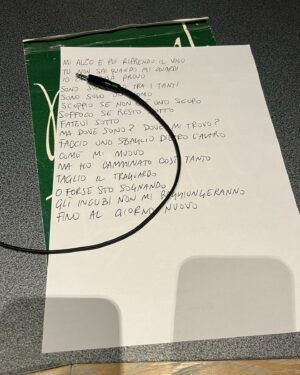 MI ALZO E POI RIPRENDO IL VOLO
TU NON SAI QUANDO MI GUARDI
IO PROVO
SONO TRA I TANTI
SONO SOLO UOMO
SCOPPIO SE NON UNO SCUDO
SOFFOCO SE RESTO SOTTO
FATEVI SOTTO
MA DOVE SONO? DOVE MI TROVO?
FACCIO UNO SBAGLIO DIETRO L'ALTRO
COME MI MUOVO
MA HO CAMMINATO COSÌ TANTO
TAGLIO IL TRAGUARDO
O FORSE STO SOGNANDO
GLI INCUBI NON MI RAGGIUNGERANNO
FINO AL GIORNO NUOVO